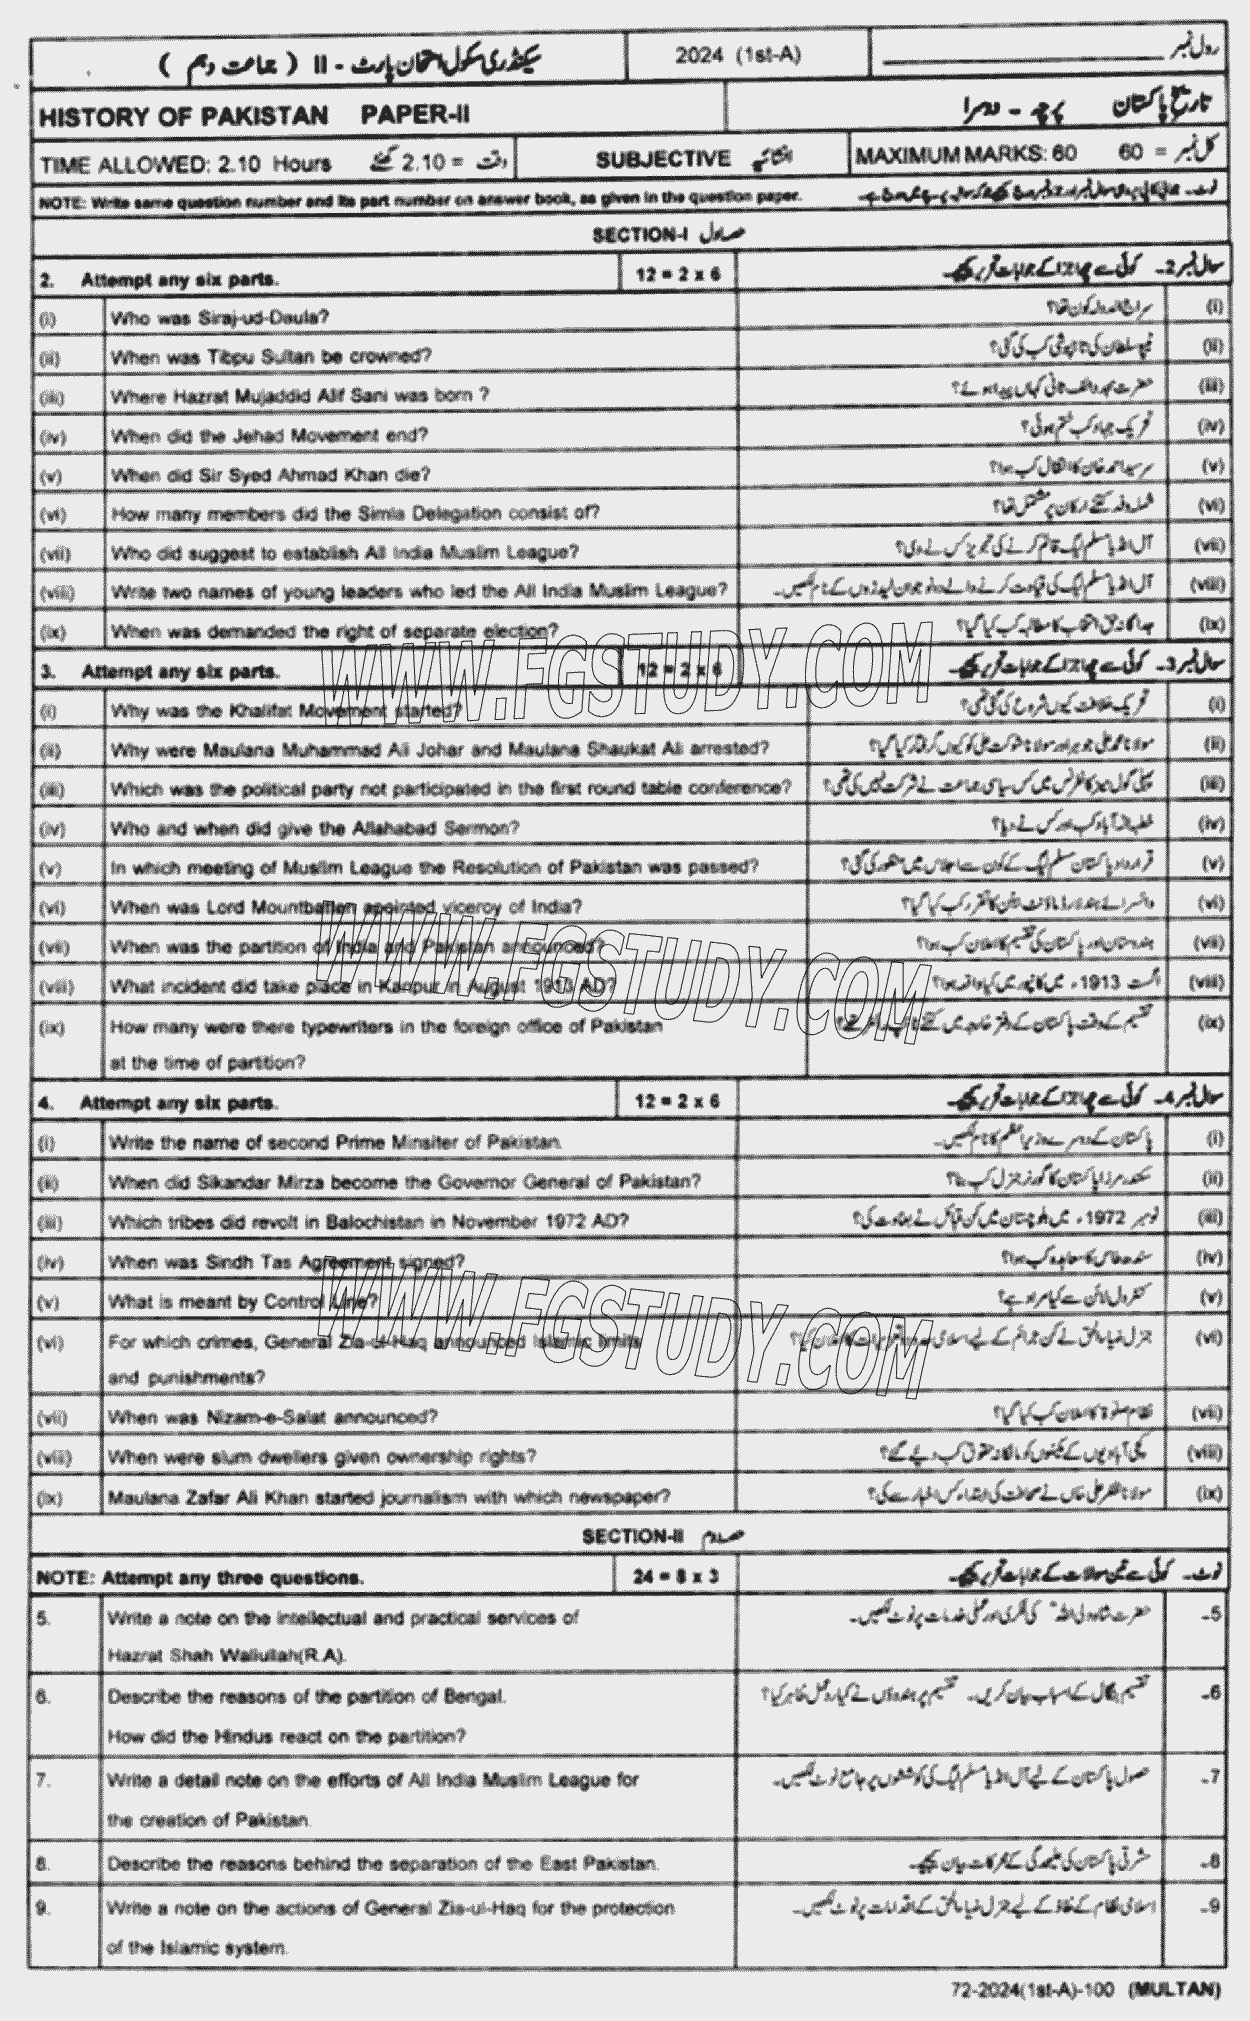 سیکنڈری سکول امتحان پارٹ - II ( جماعت دہم )
2024 (1st-A)
رول نمبر
HISTORY OF PAKISTAN PAPER-II
تاریخ پاکستان پرچہ - دوسرا
TIME ALLOWED: 2.10 Hours
وقت = 2.10 گھنٹے
SUBJECTIVE انشائیہ
MAXIMUM MARKS: 60
کل نمبر = 60
NOTE: Write same question number and its part number on answer book, as given in the question paper.
SECTION-I حصہ اول
2. Attempt any six parts.
12 = 2 x 6
سوال نمبر 2۔ کوئی سے چھ اجزا کے جوابات تحریر کیجئے۔
(i) Who was Siraj-ud-Daula?
سراج الدولہ کون تھا؟ (i)
(ii) When was Tibpu Sultan be crowned?
ٹیپو سلطان کی تاجپوشی کب کی گئی؟ (ii)
(iii) Where Hazrat Mujaddid Alif Sani was born ?
حضرت مجدد الف ثانی کہاں پیدا ہوئے؟ (iii)
(iv) When did the Jehad Movement end?
تحریک جہاد کب ختم ہوئی؟ (iv)
(v) When did Sir Syed Ahmad Khan die?
سرسید احمد خان کا انتقال کب ہوا؟ (v)
(vi) How many members did the Simla Delegation consist of?
شملہ وفد کتنے ارکان پر مشتمل تھا؟ (vi)
(vii) Who did suggest to establish All India Muslim League?
آل انڈیا مسلم لیگ قائم کرنے کی تجویز کس نے دی؟ (vii)
(viii) Write two names of young leaders who led the All India Muslim League?
آل انڈیا مسلم لیگ کی قیادت کرنے والے دو نوجوان لیڈروں کے نام لکھیں۔ (viii)
(ix) When was demanded the right of separate election?
جداگانہ حق انتخاب کا مطالبہ کب کیا گیا؟ (ix)
3. Attempt any six parts.
12 = 2 x 6
سوال نمبر 3۔ کوئی سے چھ اجزا کے جوابات تحریر کیجئے۔
WWW.FGSTUDY.COM
(i) Why was the Khalifat Movement started?
تحریک خلافت کیوں شروع کی گئی تھی؟ (i)
(ii) Why were Maulana Muhammad Ali Johar and Maulana Shaukat Ali arrested?
مولانا محمد علی جوہر اور مولانا شوکت علی کو کیوں گرفتار کیا گیا؟ (ii)
(iii) Which was the political party not participated in the first round table conference?
پہلی گول میز کانفرنس میں کس سیاسی جماعت نے شرکت نہیں کی تھی؟ (iii)
(iv) Who and when did give the Allahabad Sermon?
خطبہ الہ آباد کب اور کس نے دیا؟ (iv)
(v) In which meeting of Muslim League the Resolution of Pakistan was passed?
قرارداد پاکستان مسلم لیگ کے کون سے اجلاس میں منظور کی گئی؟ (v)
(vi) When was Lord Mountbatten apointed viceroy of India?
وائسرائے ہند لارڈ ماؤنٹ بیٹن کا تقرر کب کیا گیا؟ (vi)
(vii) When was the partition of India and Pakistan announced?
ہندوستان اور پاکستان کی تقسیم کا اعلان کب ہوا؟ (vii)
WWW.FGSTUDY.COM
(viii) What incident did take place in Kanpur in August 1913 AD?
اگست 1913ء میں کانپور میں کیا واقعہ ہوا؟ (viii)
(ix) How many were there typewriters in the foreign office of Pakistan
at the time of partition?
تقسیم کے وقت پاکستان کے دفتر خارجہ میں کتنے ٹائپ رائٹر تھے؟ (ix)
4. Attempt any six parts.
12 = 2 x 6
سوال نمبر 4۔ کوئی سے چھ اجزا کے جوابات تحریر کیجئے۔
(i) Write the name of second Prime Minsiter of Pakistan.
پاکستان کے دوسرے وزیر اعظم کا نام لکھیں۔ (i)
(ii) When did Sikandar Mirza become the Governor General of Pakistan?
سکندر مرزا پاکستان کا گورنر جنرل کب بنا؟ (ii)
(iii) Which tribes did revolt in Balochistan in November 1972 AD?
نومبر 1972ء میں بلوچستان میں کن قبائل نے بغاوت کی؟ (iii)
(iv) When was Sindh Tas Agreement signed?
سندھ طاس کا معاہدہ کب ہوا؟ (iv)
(v) What is meant by Control Line?
کنٹرول لائن سے کیا مراد ہے؟ (v)
WWW.FGSTUDY.COM
(vi) For which crimes, General Zia-ul-Haq announced Islamic limits
and punishments?
جنرل ضیاء الحق نے کن جرائم کے لیے اسلامی کا اعلان کیا؟ (vi)
(vii) When was Nizam-e-Salat announced?
نظام صلوۃ کا اعلان کب کیا گیا؟ (vii)
(viii) When were slum dwellers given ownership rights?
کچی آبادیوں کے مکینوں کو مالکانہ حقوق کب دیے گئے؟ (viii)
(ix) Maulana Zafar Ali Khan started journalism with which newspaper?
مولانا ظفر علی خاں نے صحافت کی ابتداء کس اخبار سے کی؟ (ix)
SECTION-II حصہ دوم
NOTE: Attempt any three questions.
24 = 8 x 3
نوٹ۔ کوئی سے تین سوالات کے جوابات تحریر کیجئے۔
5. Write a note on the intellectual and practical services of
Hazrat Shah Waliullah(R.A).
حضرت شاہ ولی اللہ کی فکری اور عملی خدمات پر نوٹ لکھیں۔ 5۔
6. Describe the reasons of the partition of Bengal.
How did the Hindus react on the partition?
تقسیم بنگال کے اسباب بیان کریں۔ تقسیم پر ہندوؤں نے کیا رد عمل ظاہر کیا؟ 6۔
7. Write a detail note on the efforts of All India Muslim League for
the creation of Pakistan.
حصول پاکستان کے لیے آل انڈیا مسلم لیگ کی کوششوں پر جامع نوٹ لکھیں۔ 7۔
8. Describe the reasons behind the separation of the East Pakistan.
مشرقی پاکستان کی علیحدگی کے محرکات بیان کیجئے۔ 8۔
9. Write a note on the actions of General Zia-ul-Haq for the protection
of the Islamic system.
اسلامی نظام کے نفاذ کے لیے جنرل ضیاء الحق کے اقدامات پر نوٹ لکھیں۔ 9۔
72-2024(1st-A)-100 (MULTAN)